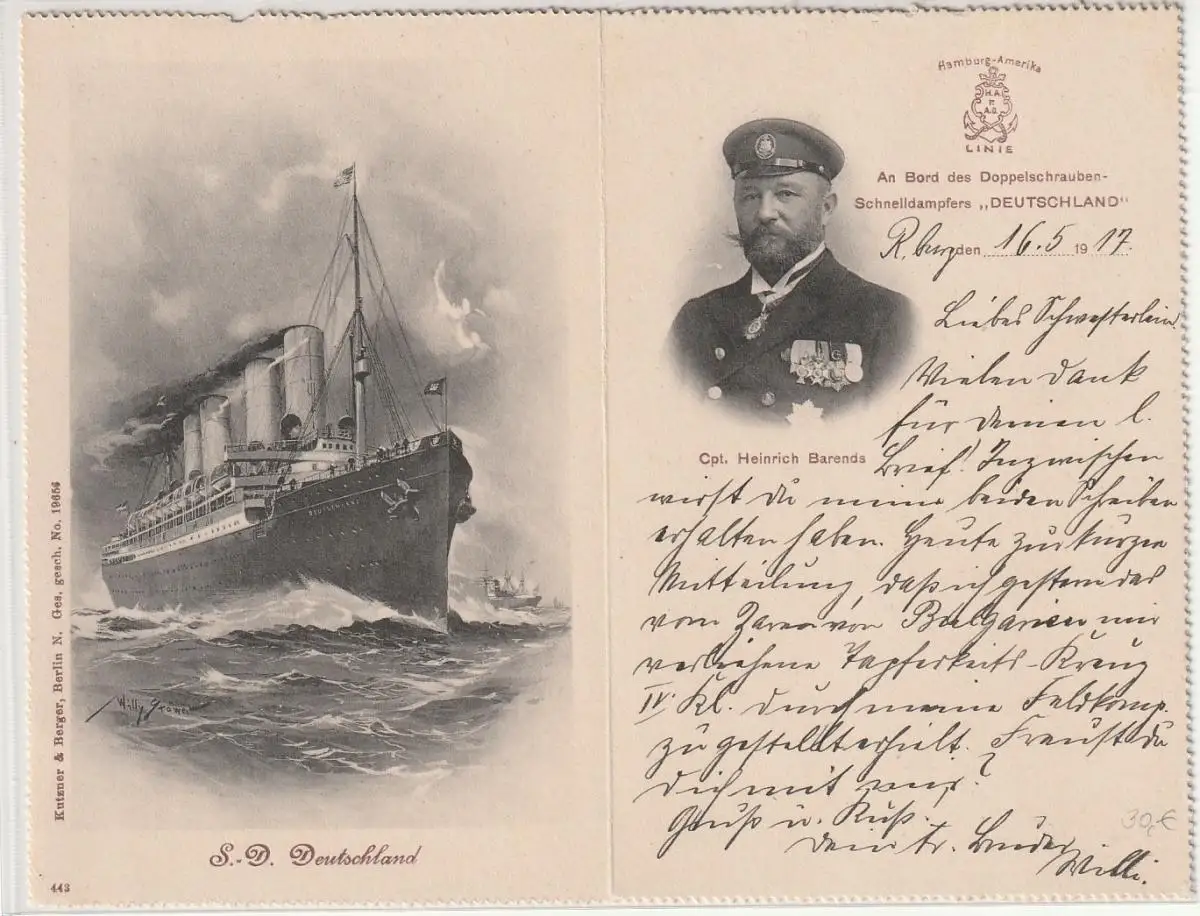 Kutzner & Berger, Berlin N. Ges. gesch. No. 19656
DEUTSCHLAND
Willy Stöwer
S.-D. Deutschland
443
Hamburg-Amerika
H.A.
P.
A.G.
LINIE
An Bord des Doppelschrauben-
Schnelldampfers „DEUTSCHLAND"
den 16.5 1917.
Cpt. Heinrich Barends
Liebes Schwesterlein!
Vielen Dank
für deinen l.
Brief! Inzwischen
wirst du meine beiden Schreiben
erhalten haben. Heute zur kurzen
Mitteilung, daß ich gestern das
vom Zaren von Bulgarien mir
verliehene Tapferkeits-Kreuz
IV. Kl. durch meine Feldkomp.
zugestellt erhielt. Freust du
dich mit mir?
Gruß u. Kuß.
Dein tr. Bruder
Willi.
30,-€